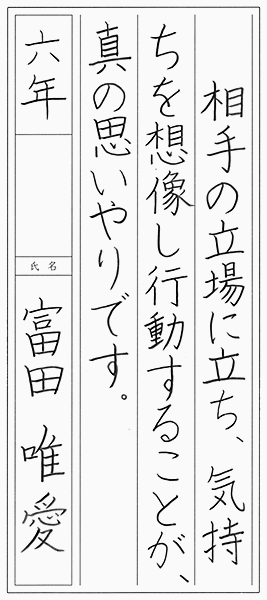 相手の立場に立ち、気持
ちを想像し行動することが、
真の思いやりです。
六年
氏名
富田唯愛